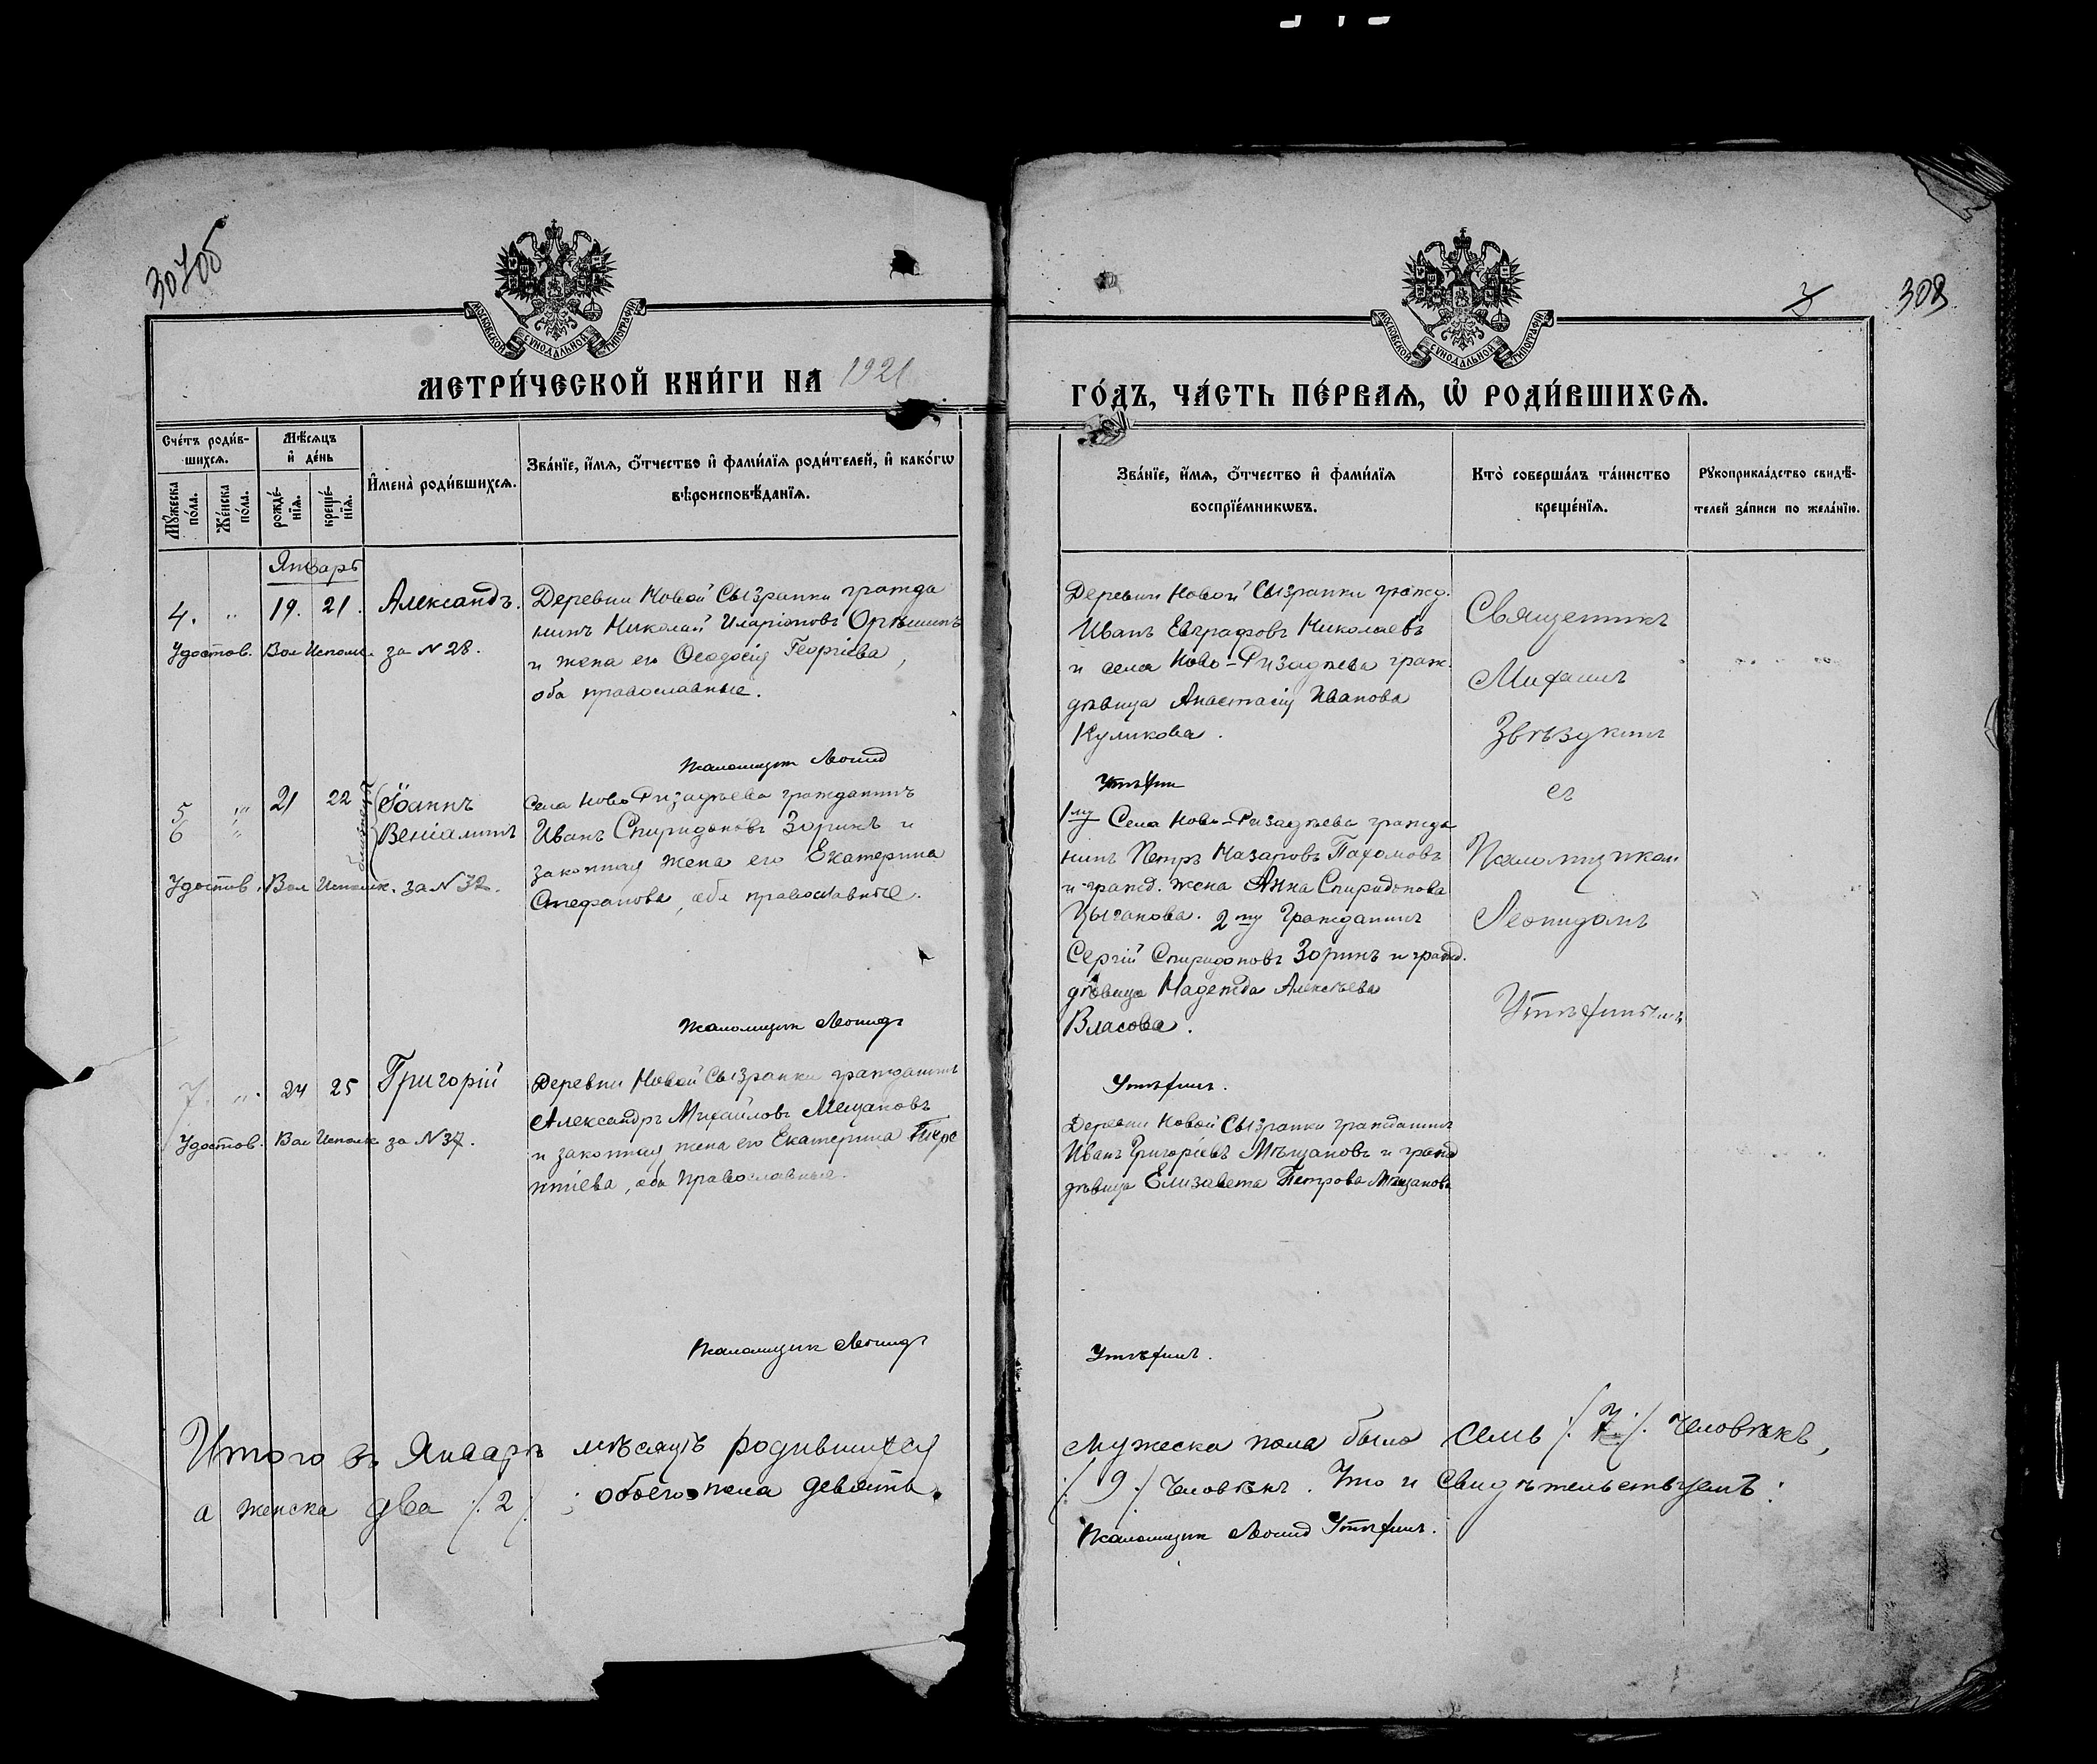 307об
3
308
МОСКОВСКОЙ СѴНОДАЛЬНОЙ ТИПОГРАФІИ
МОСКОВСКОЙ СѴНОДАЛЬНОЙ ТИПОГРАФІИ
МЕТРИ́ЧЕСКОЙ КНИ́ГИ НА 1921
ГО́ДЪ, ЧА́СТЬ ПЕ́РВАѦ, Ѡ҆ РОДИ́ВШИХСѦ.
Сче́тъ роди́в-
шихсѧ.
Мꙋ́жеска по́ла.
Же́нска по́ла.
Мѣ́сѧцъ
и҆ де́нь
рожде́-
нїѧ.
креще́-
нїѧ.
И҆мена̀ роди́вшихсѧ.
Зва́нїе, и҆́мѧ, ѻ҆́тчество и҆ фами́лїѧ роди́телей, и҆ како́гѡ
вѣроисповѣ́данїѧ.
Зва́нїе, и҆́мѧ, ѻ҆́тчество и҆ фами́лїѧ
воспрїе́мникѡвъ.
Кто̀ соверша́лъ та́инство
креще́нїѧ.
Рꙋкоприкла́дство свидѣ́-
телей за́писи по жела́нїю.
Январь
4. " 19. 21. Александъ.
Удостов. Вол Исполк. за N 28.
Деревни Новой Сызранки гражда
нинъ Николай Иларіоновъ
и жена его Ѳеодосія Георгіева,
оба православные.
Псаломщик Леонид
Деревни Новой Сызранки гражд.
Иванъ Евграфовъ Николаевъ
и села Ново-Ризадѣева граж.
дѣвица Анастасія Иванова
Куликова.
Утѣхин
Священникъ
Михаилъ
Звѣздкинъ
съ
Псаломщикомъ
Леонидомъ
Утѣхинымъ
5 " 21 22 Іоаннъ
6 " близнецы Веніаминъ
Удостов. Вол Исполк. за N 32.
Села Ново Ризадѣева гражданинъ
Иванъ Спиридоновъ Зоринъ и
законная жена его Екатерина
Стефанова, оба православные.
Псаломщик Леонидъ
1му Села Ново-Ризадѣева гражда
нинъ Петръ Назаровъ Пахомовъ
и гражд. жена Анна Спиридонова
Цыганова. 2му Гражданинъ
Сергій Спиридоновъ Зоринъ и гражд.
дѣвица Надежда Алексѣева
Власова.
Утѣхинъ.
7. " 24 25 Григорій
Удостов. Вол Исполк за N 37.
Деревни Новой Сызранки гражданинъ
Александръ Михайловъ Мещановъ
и законная жена его Екатерина
оба православные.
Псаломщик Леонидъ
Деревни Новой Сызранки гражданинъ
Иванъ Григорьевъ Мѣщановъ и гражд
дѣвица Елизавета Петрова Мѣщанова
Утѣхинъ.
Итого въ Январѣ мѣсяцѣ родившихся мужеска пола было семь /.7./. человѣкъ,
а женска два /.2/. ; обоего пола девять /.9./ человѣкъ. Что и свидѣтельствуемъ:
Псаломщик Леонид Утѣхинъ.